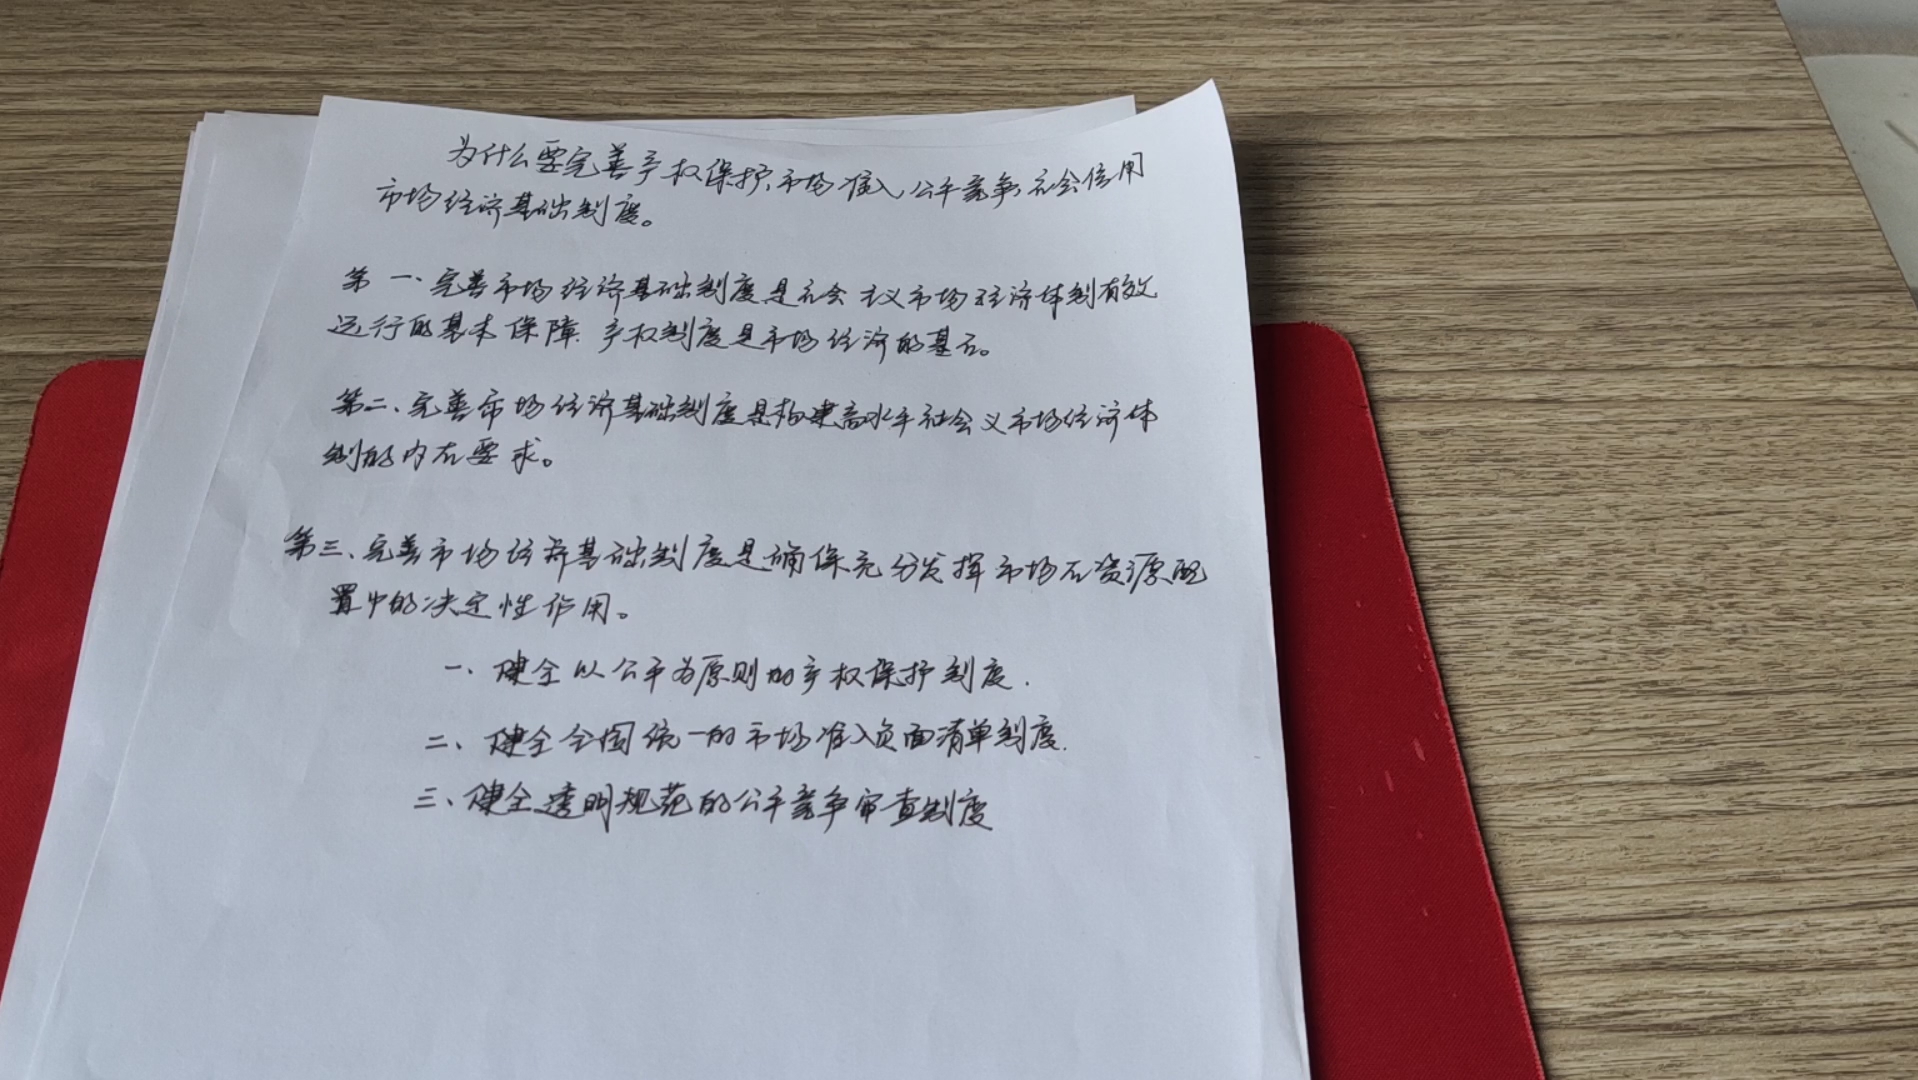 为什么要完善产权保护、市场准入、公平竞争、社会信用
市场经济基础制度。
第一、完善市场经济基础制度是社会主义市场经济体制有效
运行的基本保障.产权制度是市场经济的基石。
第二、完善市场经济基础制度是构建高水平社会义市场经济体
制的内在要求。
第三、完善市场经济基础制度是确保充分发挥市场在资源配
置中的决定性作用。
一、健全以公平为原则的产权保护制度.
二、健全全国统一的市场准入负面清单制度.
三、健全透明规范的公平竞争审查制度